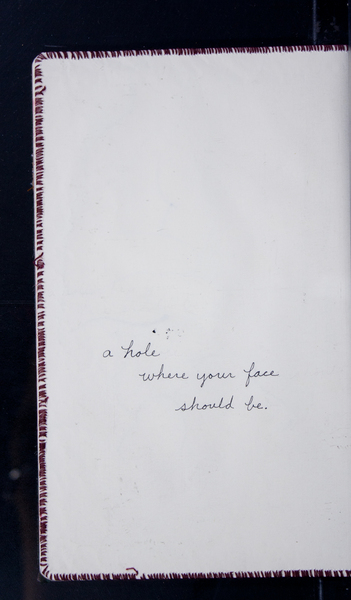 a hole
where your face
should be.